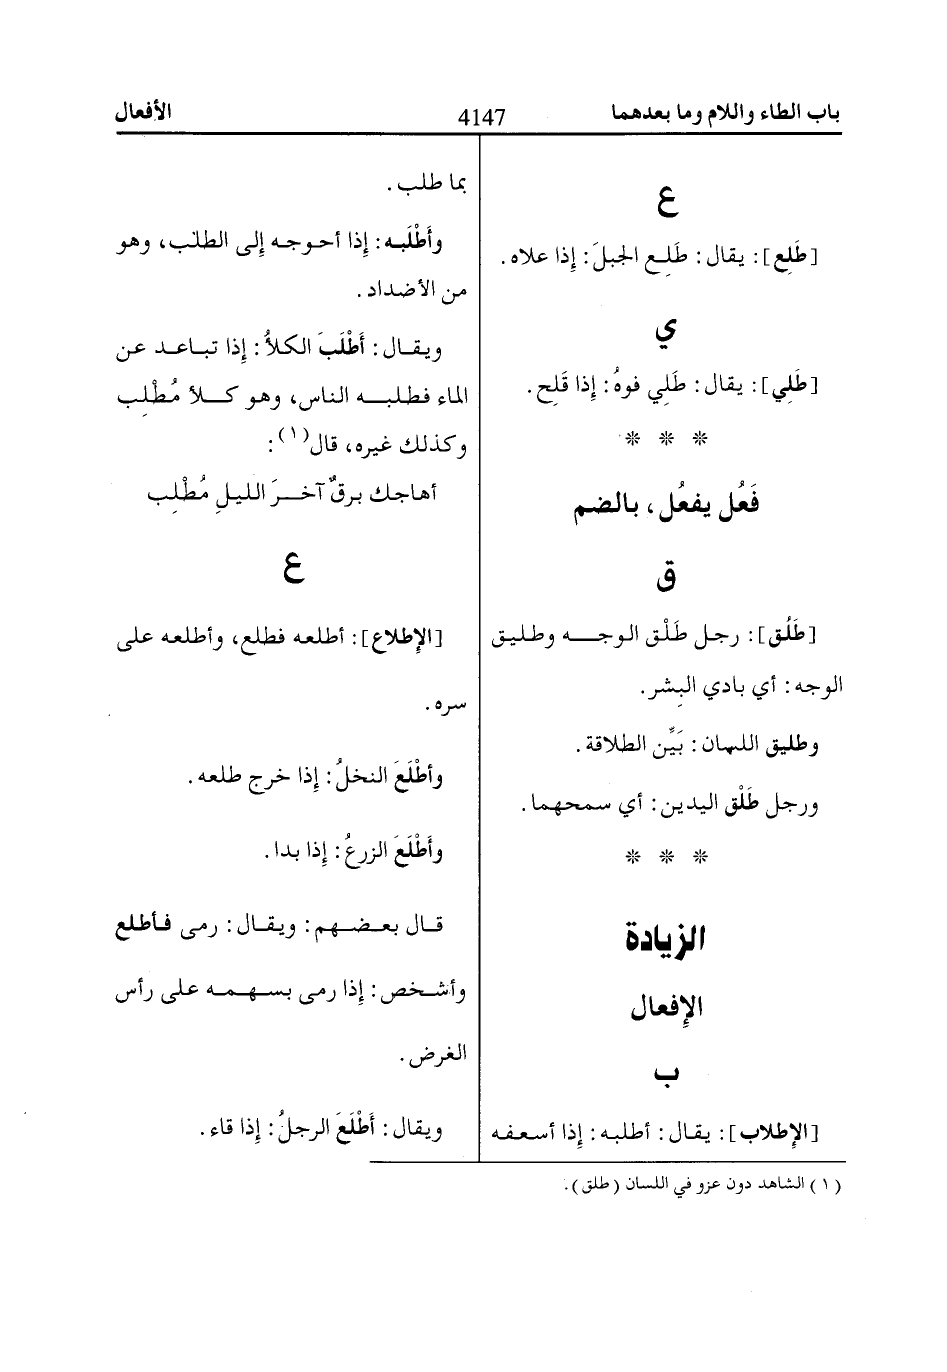 باب الطاء واللام وما بعدهما 4147 الأفعال
ع
[طَلِع]: يقال: طَلِع الجبلَ: إذا علاه.
ي
[طَلِي]: يقال: طَلِي فوهُ: إذا قَلِح.
* * *
فَعُل يفعُل، بالضم
ق
[طَلُق]: رجل طَلْق الوجه وطليق
الوجه: أي بادي البِشر.
وطليق اللسان: بَيِّن الطلاقة.
ورجل طَلْق اليدين: أي سمحهما.
* * *
الزيادة
الإفعال
ب
[الإطلاب]: يقال: أطلبه: إذا أسعفه
بما طلب.
وأَطْلَبه: إذا أحوجه إلى الطلب، وهو
من الأضداد.
ويقال: أَطْلَبَ الكلأُ: إذا تباعد عن
الماء فطلبه الناس، وهو كلأ مُطْلِب
وكذلك غيره، قال(١):
أهاجك برقٌ آخرَ الليلِ مُطْلِب
ع
[الإطلاع]: أطلعه فطلع، وأطلعه على
سره.
وأطْلَعَ النخلُ: إذا خرج طلعه.
وأَطْلَعَ الزرعُ: إذا بدا.
قال بعضهم: ويقال: رمى فأطلع
وأشخص: إذا رمى بسهمه على رأس
الغرض.
ويقال: أَطْلَعَ الرجلُ: إذا قاء.
(١) الشاهد دون عزو في اللسان (طلق).